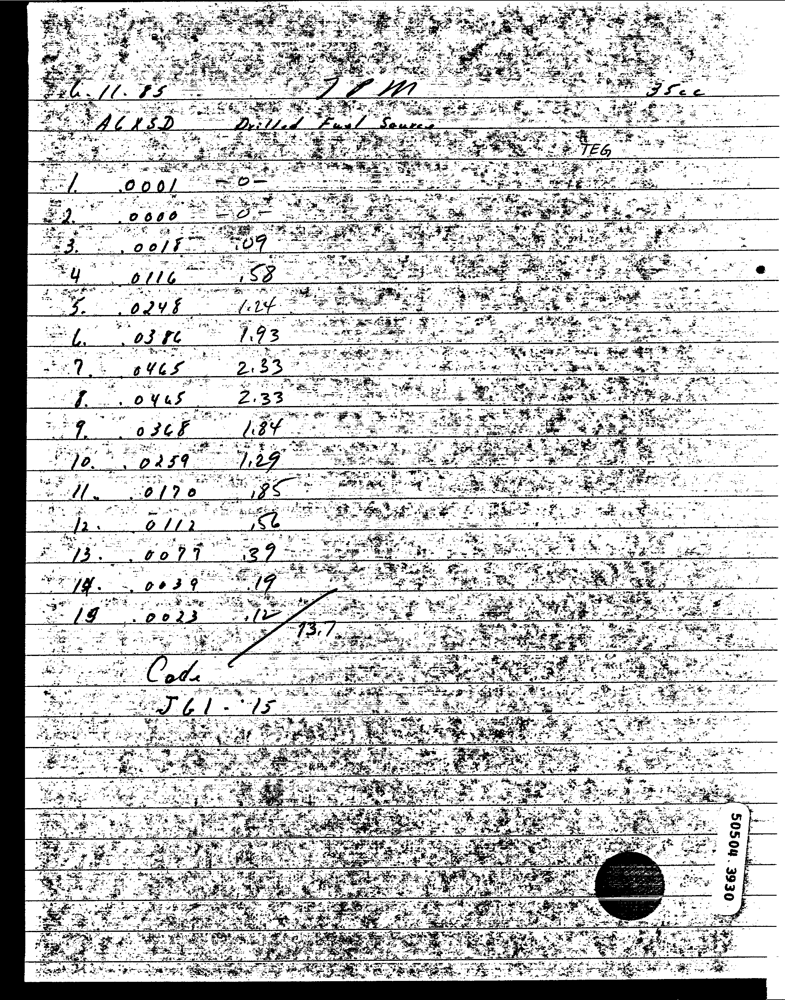 6.11.85 TPM 35cc
Drilled Fuel Source
TEG
1. .0001 -0-
2. .0000 -0-
3. .0018 .09
4 .0116 .58
5. .0248 1.24
6. .0386 1.93
7. .0465 2.33
8. .0465 2.33
9. .0368 1.84
10. .0259 1.29
11. .0170 .85
12. .0112 .56
13. .0077 .39
14. .0039 .19
15 .0023 .12
13.7
Code
J61-15
50504 3930